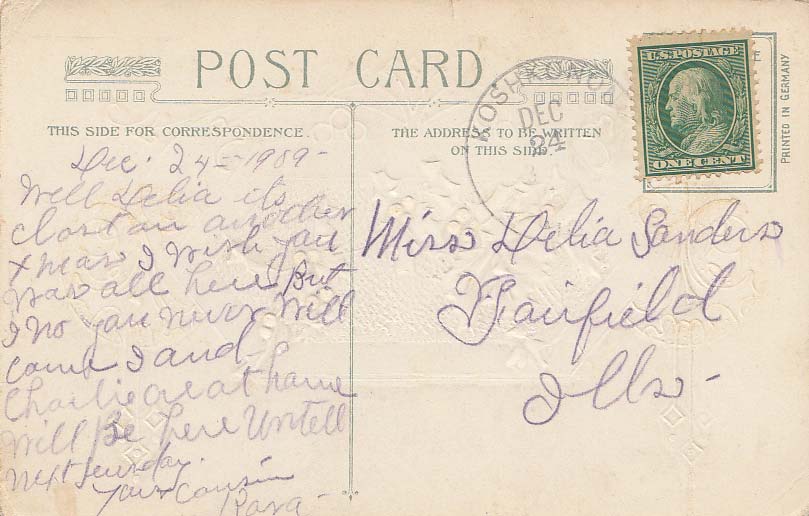 POST CARD
THIS SIDE FOR CORRESPONDENCE.
THE ADDRESS TO BE WRITTEN
ON THIS SIDE
DEC
24
U.S. POSTAGE
ONE CENT
PRINTED IN GERMANY
Dec. 24 - 1909 -
Well Delia its
clost on another
Xmas I wish you
was all here But
I no you never will
come I and
Charlie are at home
will Be here Untell
next sunday.
Your Cousin
Miss Delia Sanders
Fairfield
Ills -